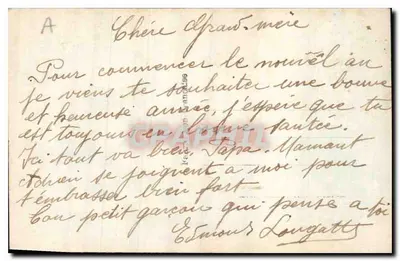 A
Chére Grand-mére
Pour commencer le nouvél an
je viens te souhaiter une bonne
et heureuse année, j'espére que tu
est toujours en bonne santée.
Ici tout va bien, Papa. Mamant
Adrien se joignent a moi pour
t'embrasser bien fort
Ton petit garçon qui pense a toi
Edmond